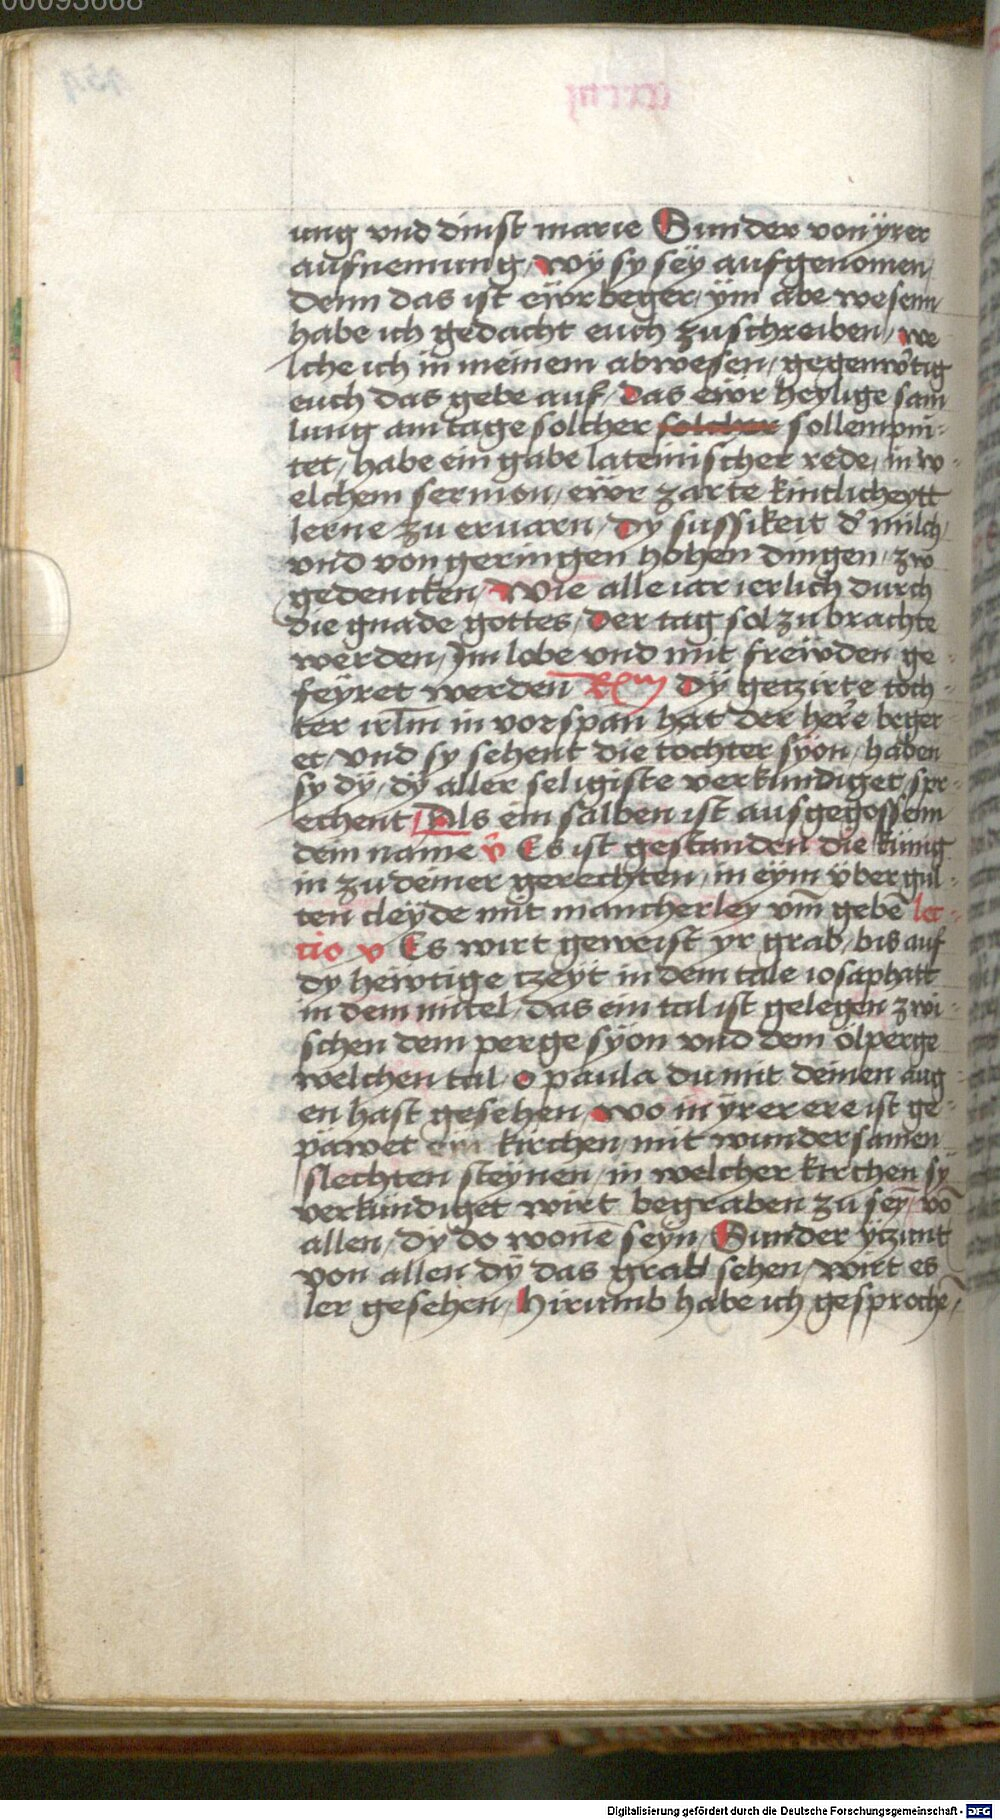 00093668
ung vnd dinst marie Sunder von ÿrer
aufnemung, wÿ sy seÿ aufgenomen,
denn das ist eẅr beger, ÿm abe wesenn
habe ich gedacht euch zuschreiben, we
lche ich in meinem abwesen, gegenw̉tig
euch das gebe auf, das eẅr heylige sam
lung am tage solcher solcher sollempni-
tet, habe ein gabe lateinischer rede, in w-
elchem sermon, eẅr zarte kintlicheytt
lerne zu eruarn, dy sussikeit d̉ milch,
vnd von geringen hohen dingen, zw
gedencken, Wie alle iar ierlich durch
die gnade gottes, der tag sol zu brachte
werden, Im lobe vnd mit freẅden ge-
feÿret werden Rm Dÿ getzirte toch-
ter irlm̄ in vorspan hat der herre beger-
et, vnd sy sehent die tochter sÿon, haben
sy dÿ, dÿ aller seligiste verkundiget spr-
echent, Als ein salben ist ausgegossenn
dein name v̉ Es ist gestanden die künig
in zu deiner gerechten, in eÿm v̈bergul-
ten cleÿde mit mancherley vm̄ gebē lec-
tio v Es wirt geweist yr grab, bis auf
dy heẅtige tzeÿt in dem tale iosaphatt
in dem mitel, das ein tal ist gelegen zwi-
schen dem perge sÿon vnd dem ölperge
welchen tal, o paula du mit deinen aug-
en hast gesehen, wo in ÿrer ere ist ge-
päwet ein kirchen, mit wundersamen
slechten steÿnen, in welcher kirchen sÿ
verkündiget wirt begraben zu seȳ, vō
allen, dÿ do wonē seyn, Sunder ÿtzunt
von allen dÿ das grab sehen, wirt es
ler gesehen, hirumb habe ich gesprochē,
Digitalisierung gefördert durch die Deutsche Forschungsgemeinschaft - DFG